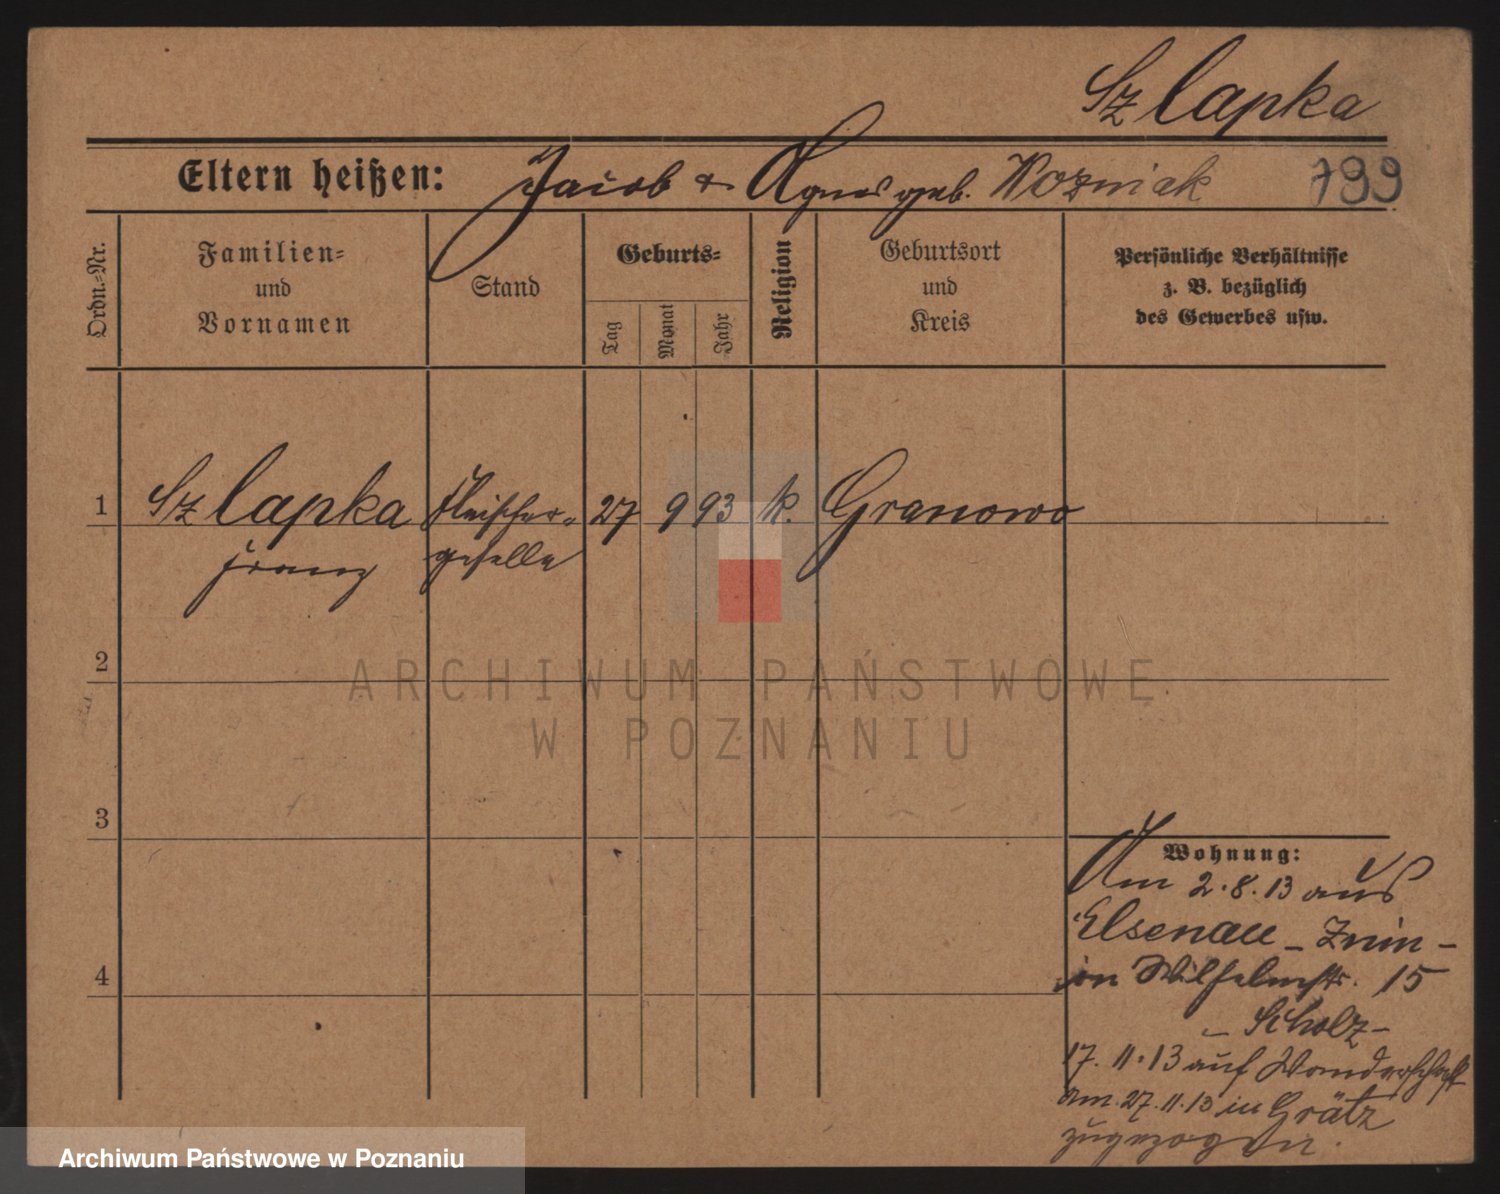 Szlapka
Eltern heißen: Jacob & Agnes geb. Wozniak 799
Ordn.-Nr.
Familien-
und
Vornamen
Stand
Geburts-
Tag
Monat
Jahr
Religion
Geburtsort
und
Kreis
Persönliche Verhältnisse
z. B. bezüglich
des Gewerbes usw.
1 Szlapka Fleischer- 27 9 93 k. Granowo
Franz geselle
2
3
4
Wohnung:
Am 2.8.13 aus
Elsenau - Znin -
in Wilhelmstr. 15
- Scholz -
17.11.13 auf Wanderschaft
Am 27.11.13 in Grätz
zugezogen.
ARCHIWUM PAŃSTWOWE
W POZNANIU
Archiwum Państwowe w Poznaniu